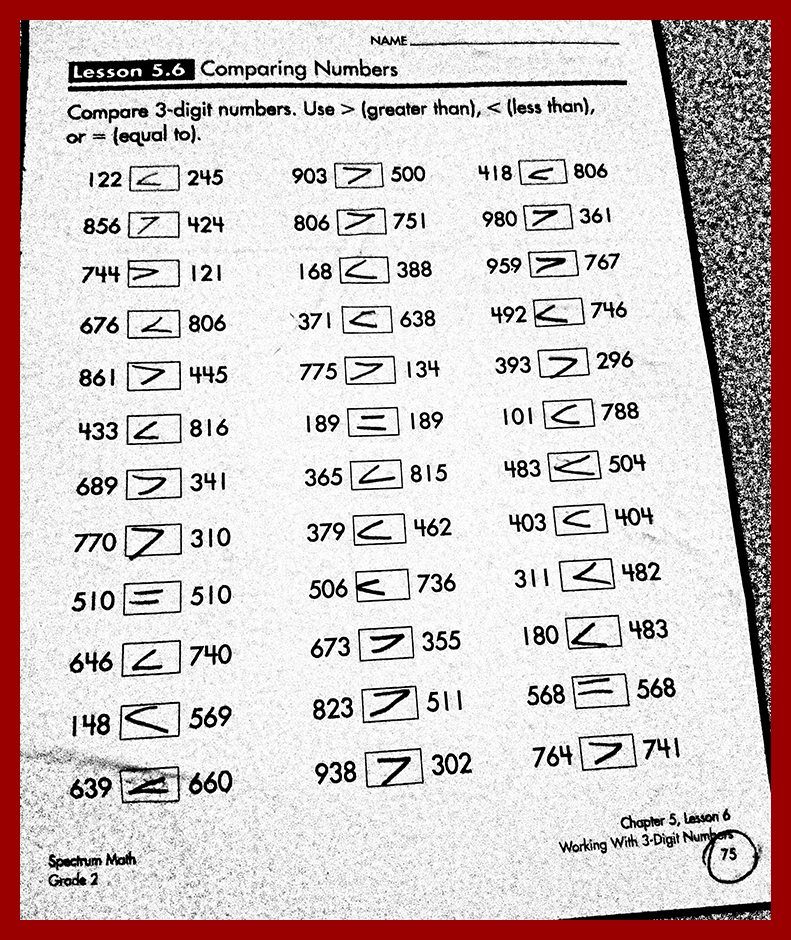 NAME
Lesson 5.6 Comparing Numbers
Compare 3-digit numbers. Use > (greater than), < (less than),
or = (equal to).
122 < 245 903 > 500 418 < 806
856 > 424 806 > 751 980 > 361
744 > 121 168 < 388 959 > 767
676 < 806 371 < 638 492 < 746
861 > 445 775 > 134 393 > 296
433 < 816 189 = 189 101 < 788
689 > 341 365 < 815 483 < 504
770 > 310 379 < 462 403 < 404
510 = 510 506 < 736 311 < 482
646 < 740 673 > 355 180 < 483
148 < 569 823 > 511 568 = 568
639 < 660 938 > 302 764 > 741
Chapter 5, Lesson 6
Working With 3-Digit Numbers
75
Spectrum Math
Grade 2